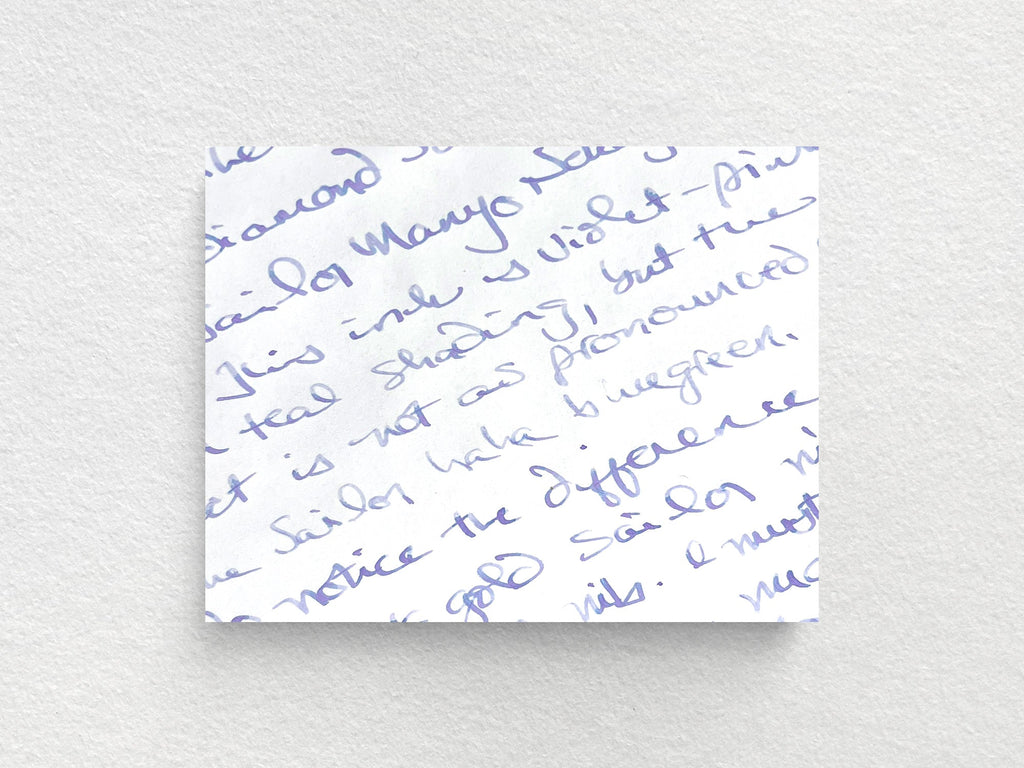 the
diamond
Sailor Manyo
This ink is violet-pink
teal shading, but the
is not as pronounced
Sailor haha bluegreen.
notice the difference
gold Sailor
nib. I must